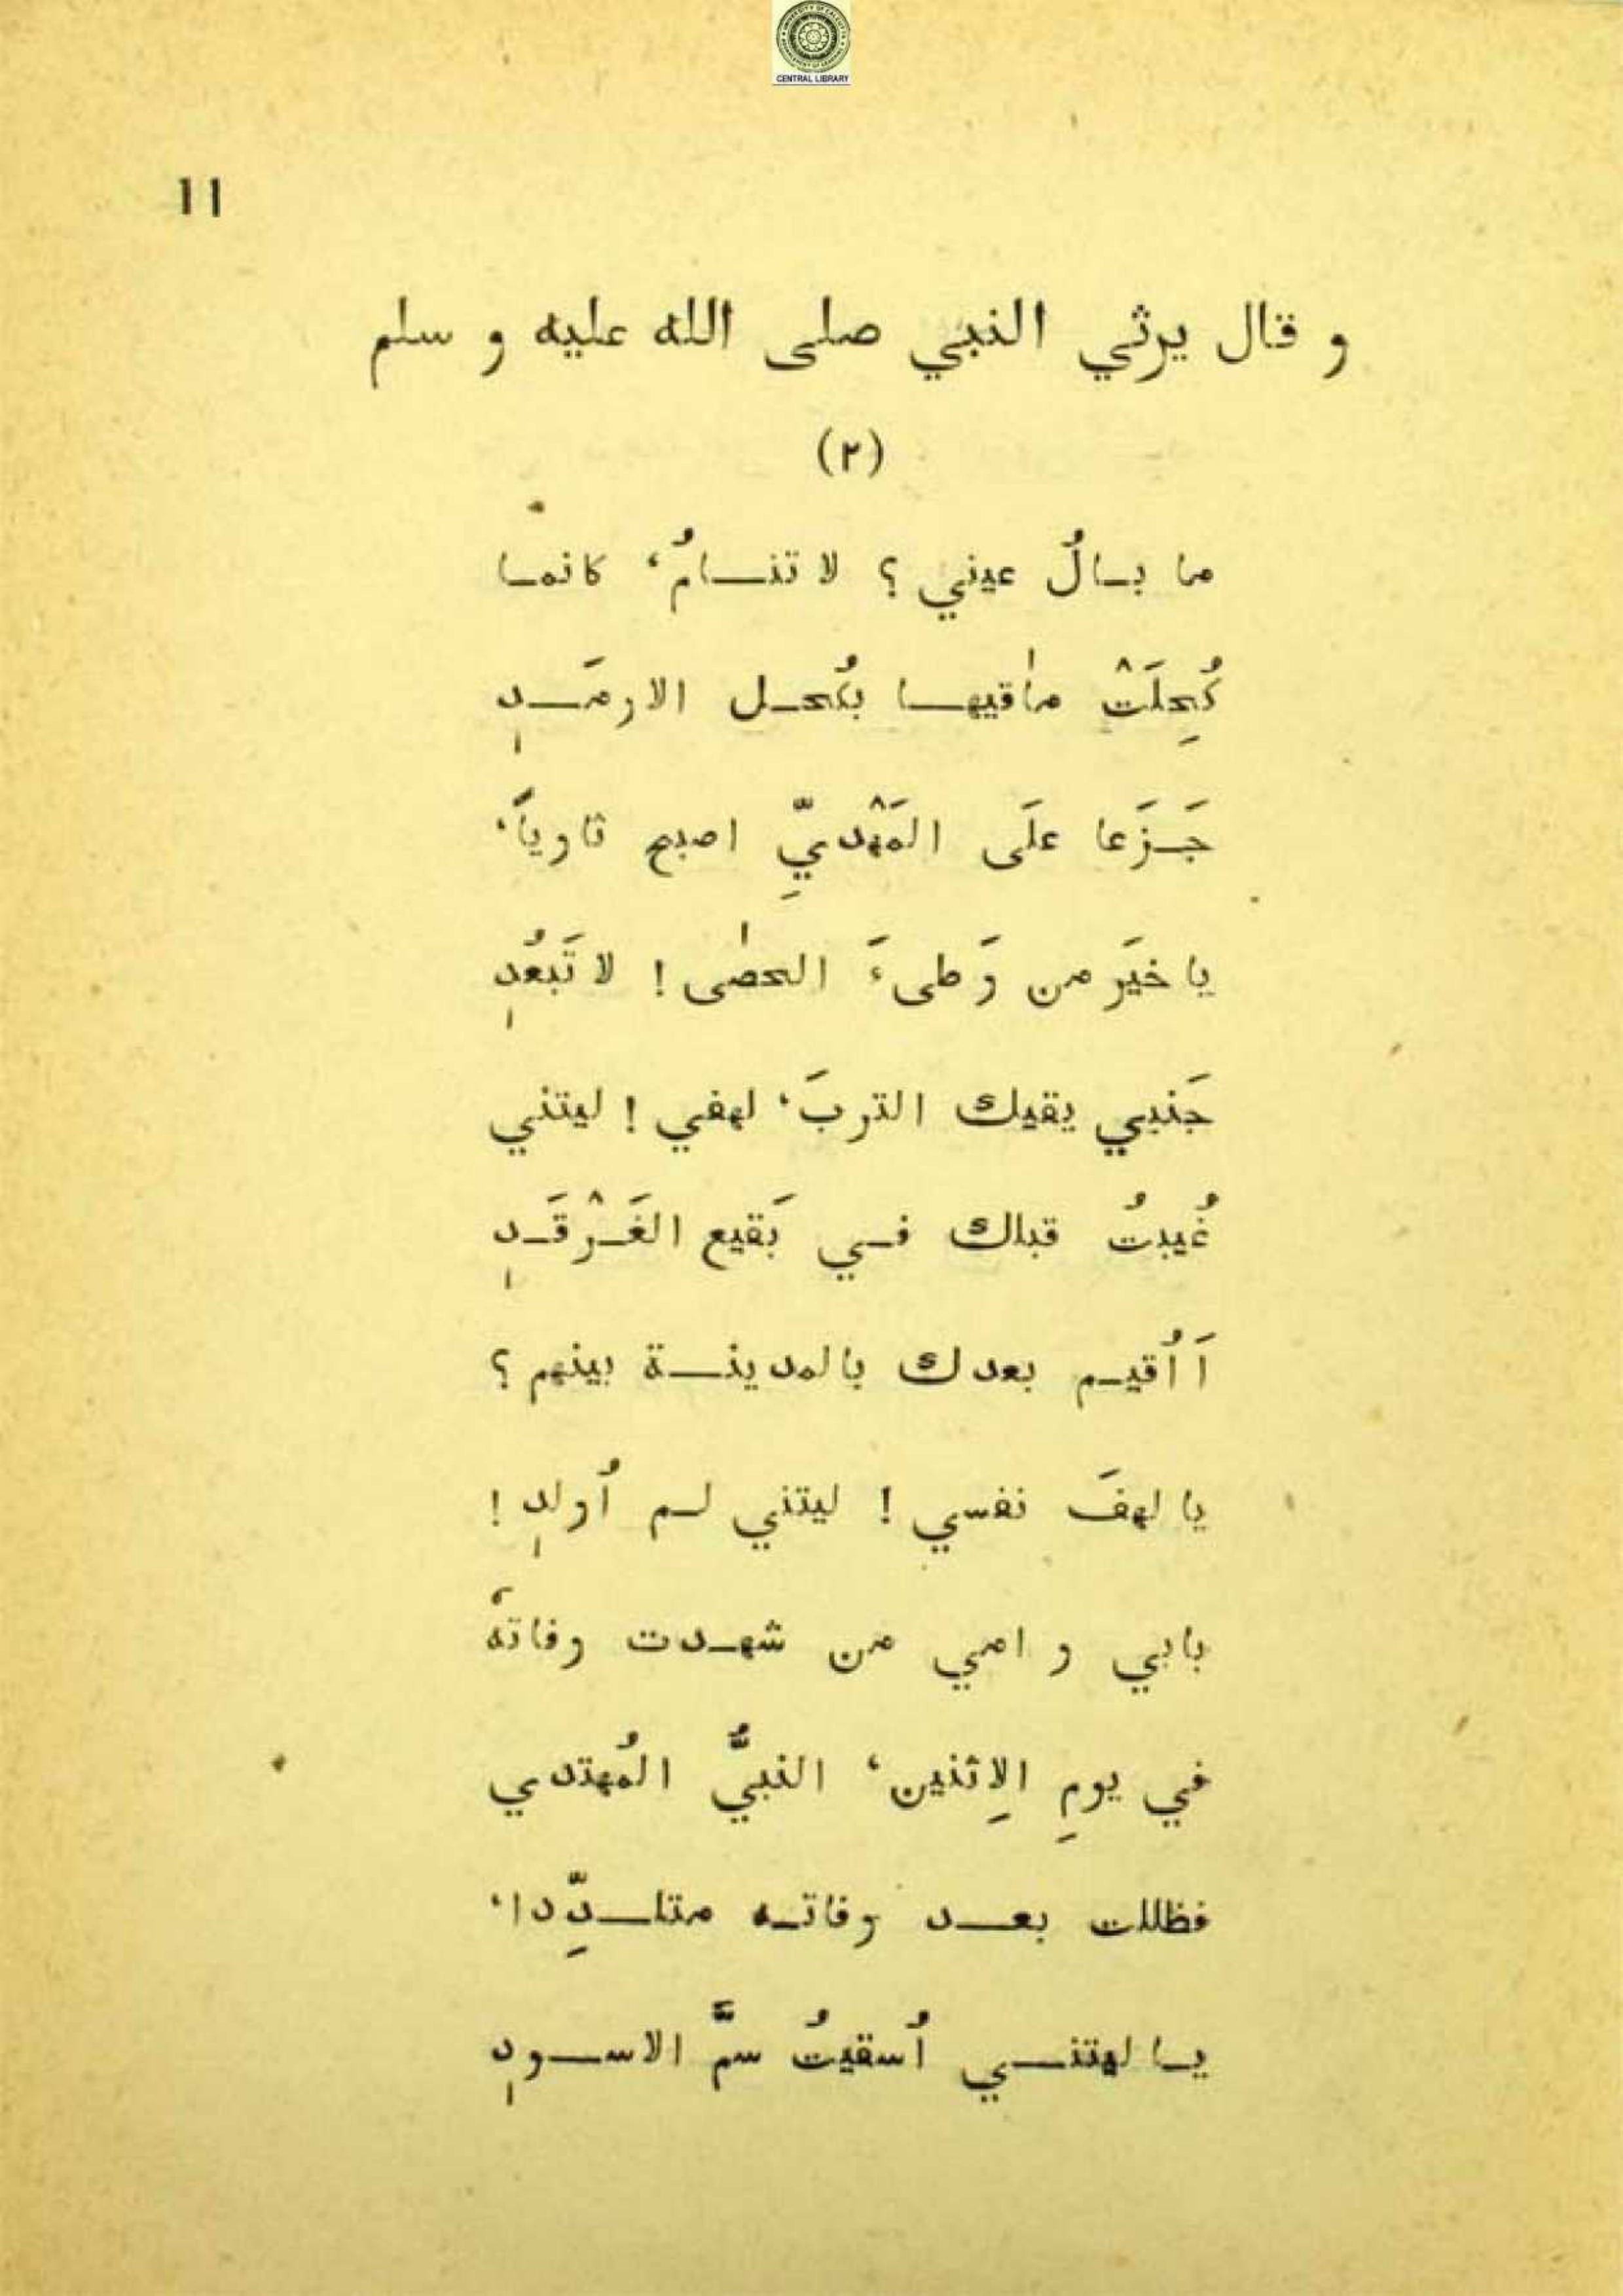 CENTRAL LIBRARY
١١
و قال يرثي النبي صلى الله عليه و سلم
(٢)
ما بالُ عيني ؟ لا تنامُ، كانما
كُحِلَتْ ماٰقيها بكُحل الارمَدِ
جَزَعا علَى المَهْديِّ اصبح ثاوياً،
يا خيَر من وَطىءَ الحصٰى ! لا تَبعُدِ
جَنبي يقيك التربَ، لهفي ! ليتني
غُيبتُ قبلك في بَقيع الغَرْقَدِ
اَ اُقيم بعدك بالمدينة بينهم ؟
يا لهفَ نفسي ! ليتني لم اُولدِ !
بابي و امي من شهدت وفاتهُ
في يومِ الاِثنين، النبيُّ المُهتدي
فظللت بعد وفاته متلدِّدا،
يا ليتني اُسقيتُ سمَّ الاسودِ